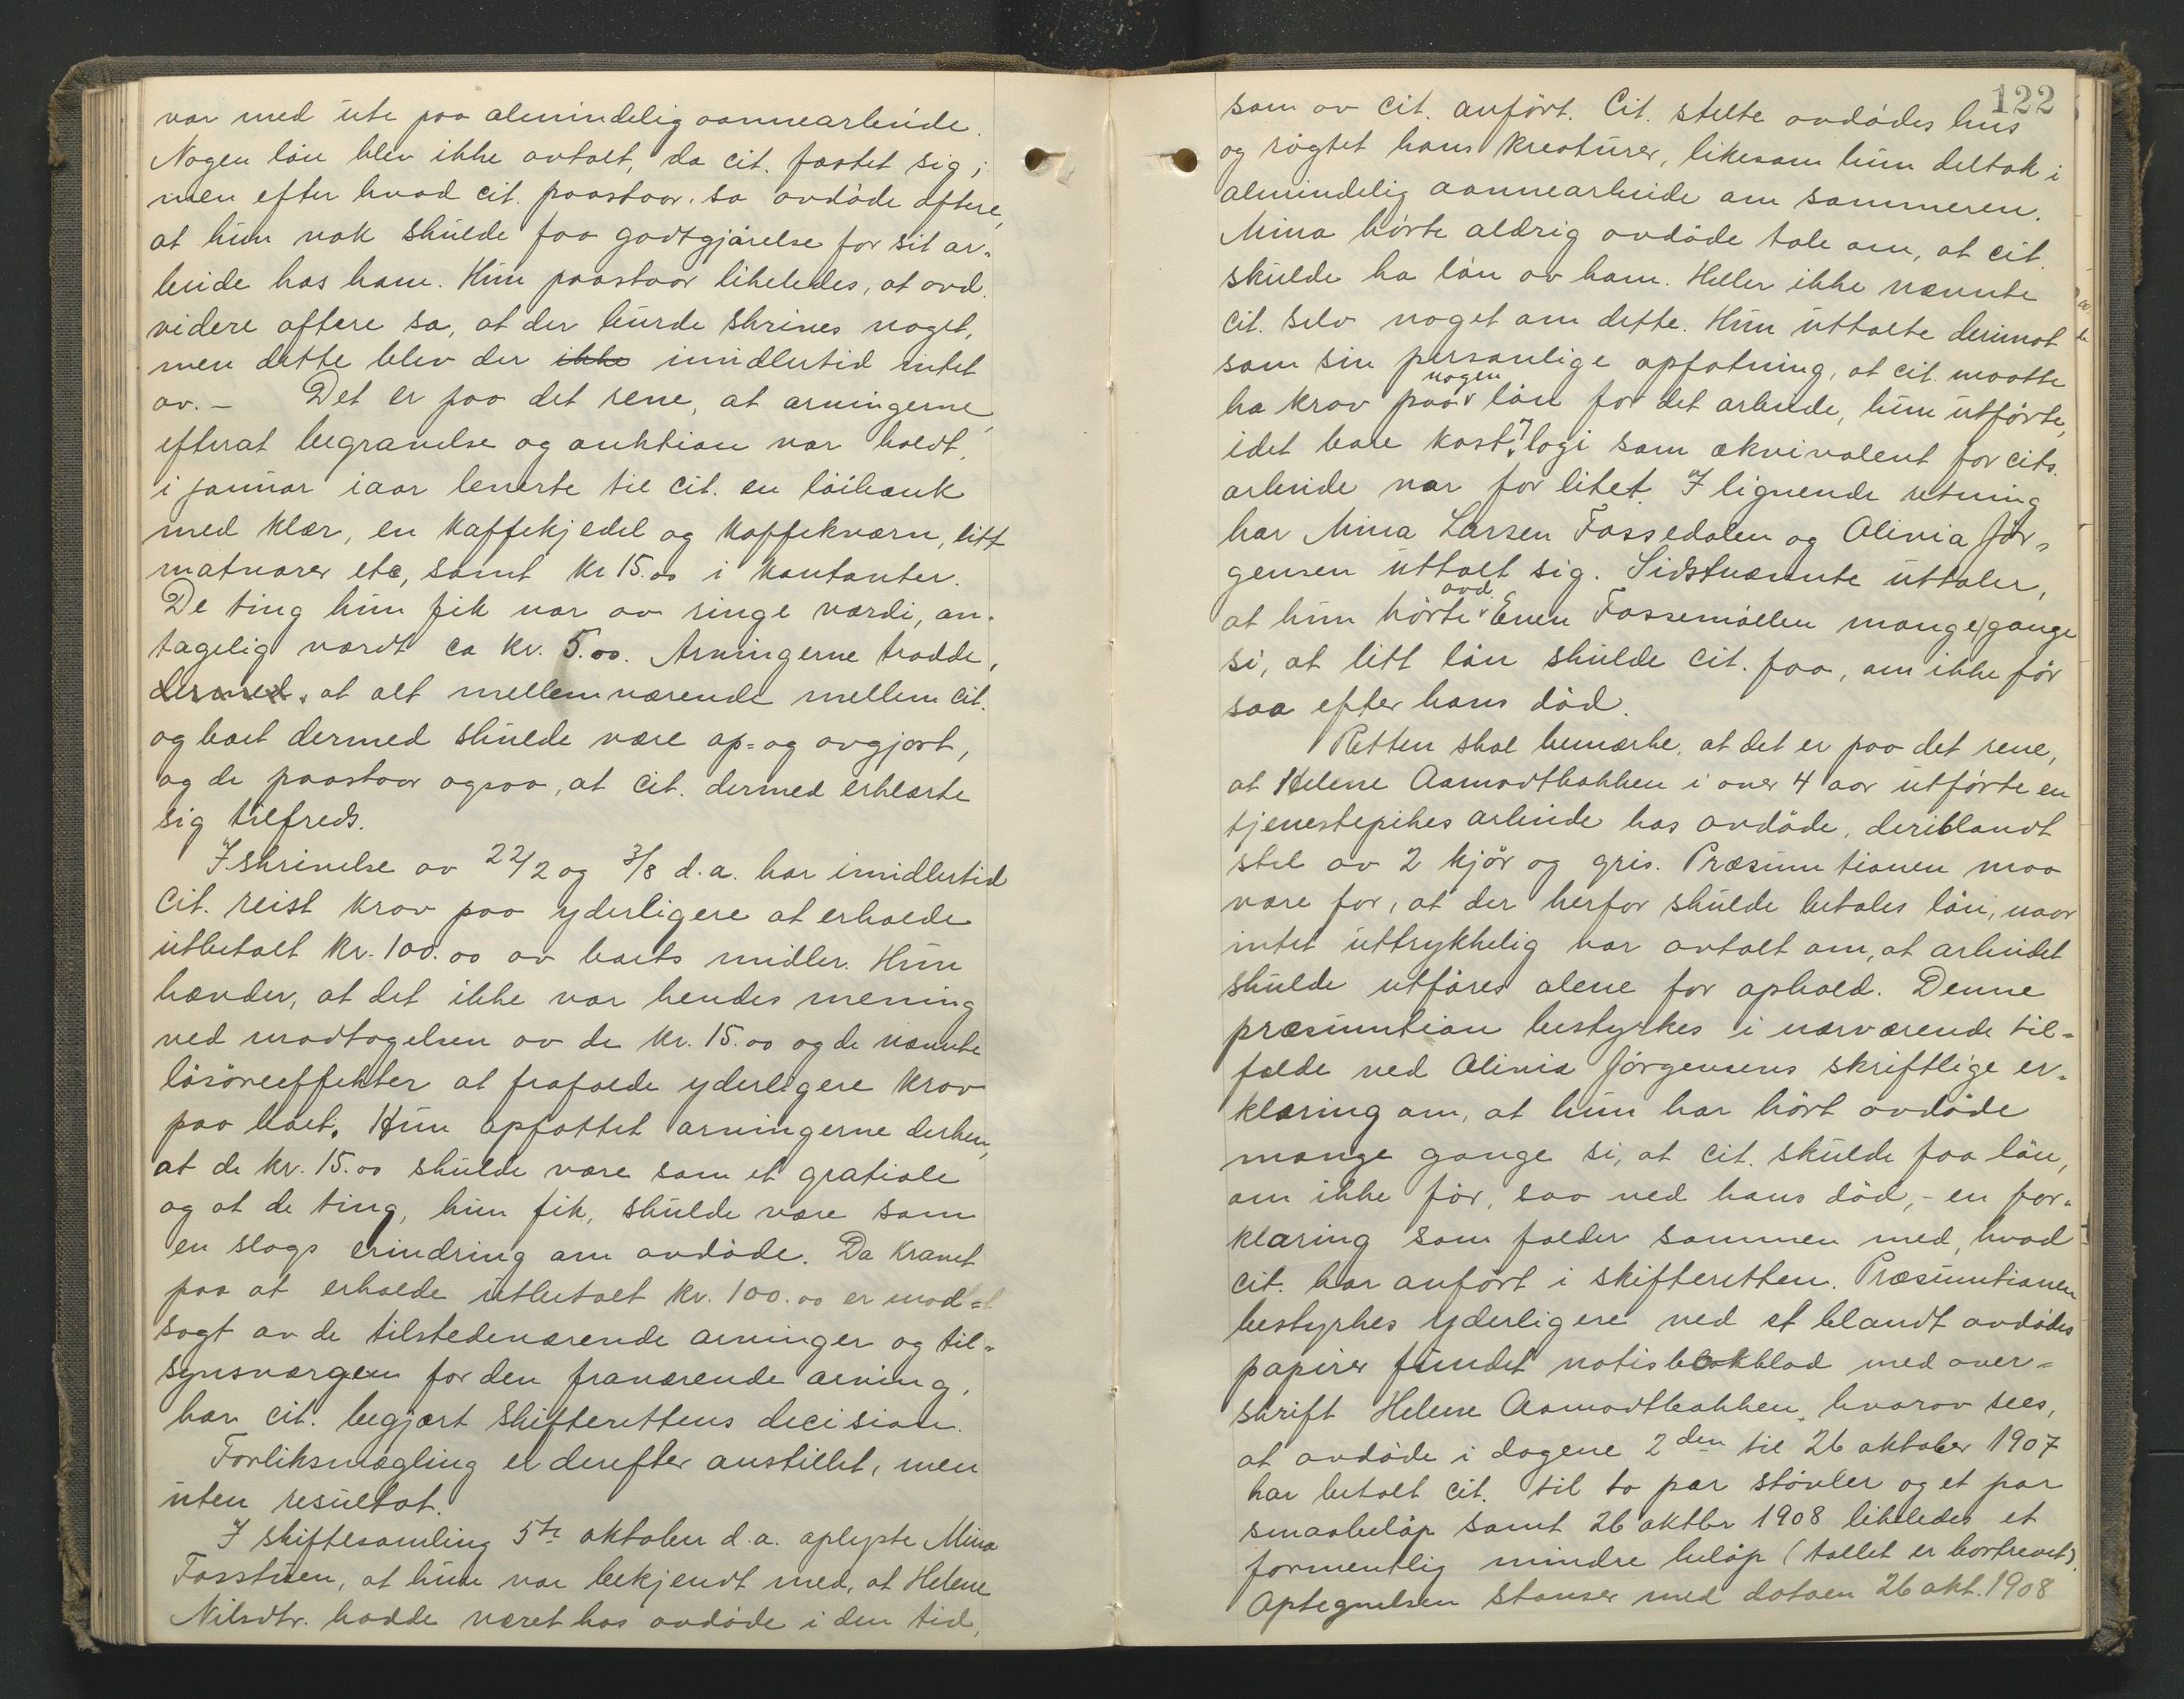 var med ute paa almindelig aannearbeide.
Nogen løn blev ikke avtalt, da cit. fæstet sig;
men efter hvad cit. paastaar, sa avdøde oftere,
at hun nok skulde faa godtgjørelse for sit ar-
beide hos ham. Hun paastaar likeledes, at avd.
videre oftere sa, at der burde skrives noget,
men dette blev der ikke imidlertid intet
av. - Det er paa det rene, at arvingerne,
efterat begravelse og auktion var holdt,
i januar iaar leverte til cit. en løibænk
med klær, en kaffekjedel og kaffekværn, litt
matvarer etc, samt kr 15.00 i kontanter.
De ting hun fik var av ringe værdi, an-
tagelig værdt ca kr. 5.00. Arvingerne trodde,
dermed, at alt mellemværende mellem cit.
og boet dermed skulde være op- og avgjort,
og de paastaar ogsaa, at cit. dermed erklærte
sig tilfreds.
I skrivelse av 22/2 og 3/8 d.a. har imidlertid
cit. reist krav paa yderligere at erholde
utbetalt kr. 100.00 av boets midler. Hun
hævder, at det ikke var hendes mening
ved modtagelsen av de kr. 15.00 og de nævnte
løsøreeffekter at frafalde yderligere krav
paa boet. Hun opfattet arvingerne derhen,
at de kr. 15.00 skulde være som et gratiale
og at de ting, hun fik, skulde være som
en slags erindring om avdøde. Da kravet
paa at erholde utbetalt kr. 100.00 er mod-
sagt av de tilstedeværende arvinger og til-
synsværgen for den fraværende arving,
har cit. begjært skifterettens decision.
Forliksmægling er derefter anstillet, men
uten resultat.
I skiftesamling 5te oktober d.a. oplyste Mina
Fosstuen, at hun var bekjendt med, at Helene
Nilsdtr. hadde været hos avdøde i den tid,
122
som av cit. anført. Cit. stelte avdødes hus
og røgtet hans kreaturer, likesom hun deltok i
almindelig aannearbeide om sommeren.
Mina hørte aldrig avdøde tale om, at cit.
skulde ha løn av ham. Heller ikke nævnte
cit. selv noget om dette. Hun uttalte derimot
som sin personlige opfatning, at cit. maatte
ha krav paa nogen løn for det arbeide, hun utførte,
idet bare kost & logi som ækvivalent for cits.
arbeide var for litet. I lignende retning
har Mina Larsen Fossedalen og Olivia Jør-
gensen uttalt sig. Sidstnævnte uttaler,
at hun hørte avd. Even Fossemøllen mange gange
si, at litt løn skulde cit. faa, om ikke før
saa efter hans død.
Retten skal bemærke, at det er paa det rene,
at Helene Aamodtbakken i over 4 aar utførte en
tjenestepikes arbeide hos avdøde, deriblandt
stel av 2 kjør og gris. Præsumtionen maa
være for, at der herfor skulde betales løn, naar
intet uttrykkelig var avtalt om, at arbeidet
skulde utføres alene for ophold. Denne
præsumtion bestyrkes i nærværende til-
fælde ved Olivia Jørgensens skriftlige er-
klæring om, at hun har hørt avdøde
mange gange si, at cit. skulde faa løn,
om ikke før, saa ved hans død, - en for-
klaring som falder sammen med, hvad
cit. har anført i skifteretten. Præsumtionen
bestyrkes yderligere ved et blandt avdødes
papirer fundet notisblokblad med over-
skrift Helene Aamodtbakken, hvorav sees,
at avdøde i dagene 2den til 26 oktober 1907
har betalt cit. til to par støvler og et par
smaabeløp samt 26 oktbr 1908 likeledes et
formentlig mindre beløp (tallet er bortrevet).
Optegnelsen stanser med datoen 26 okt. 1908